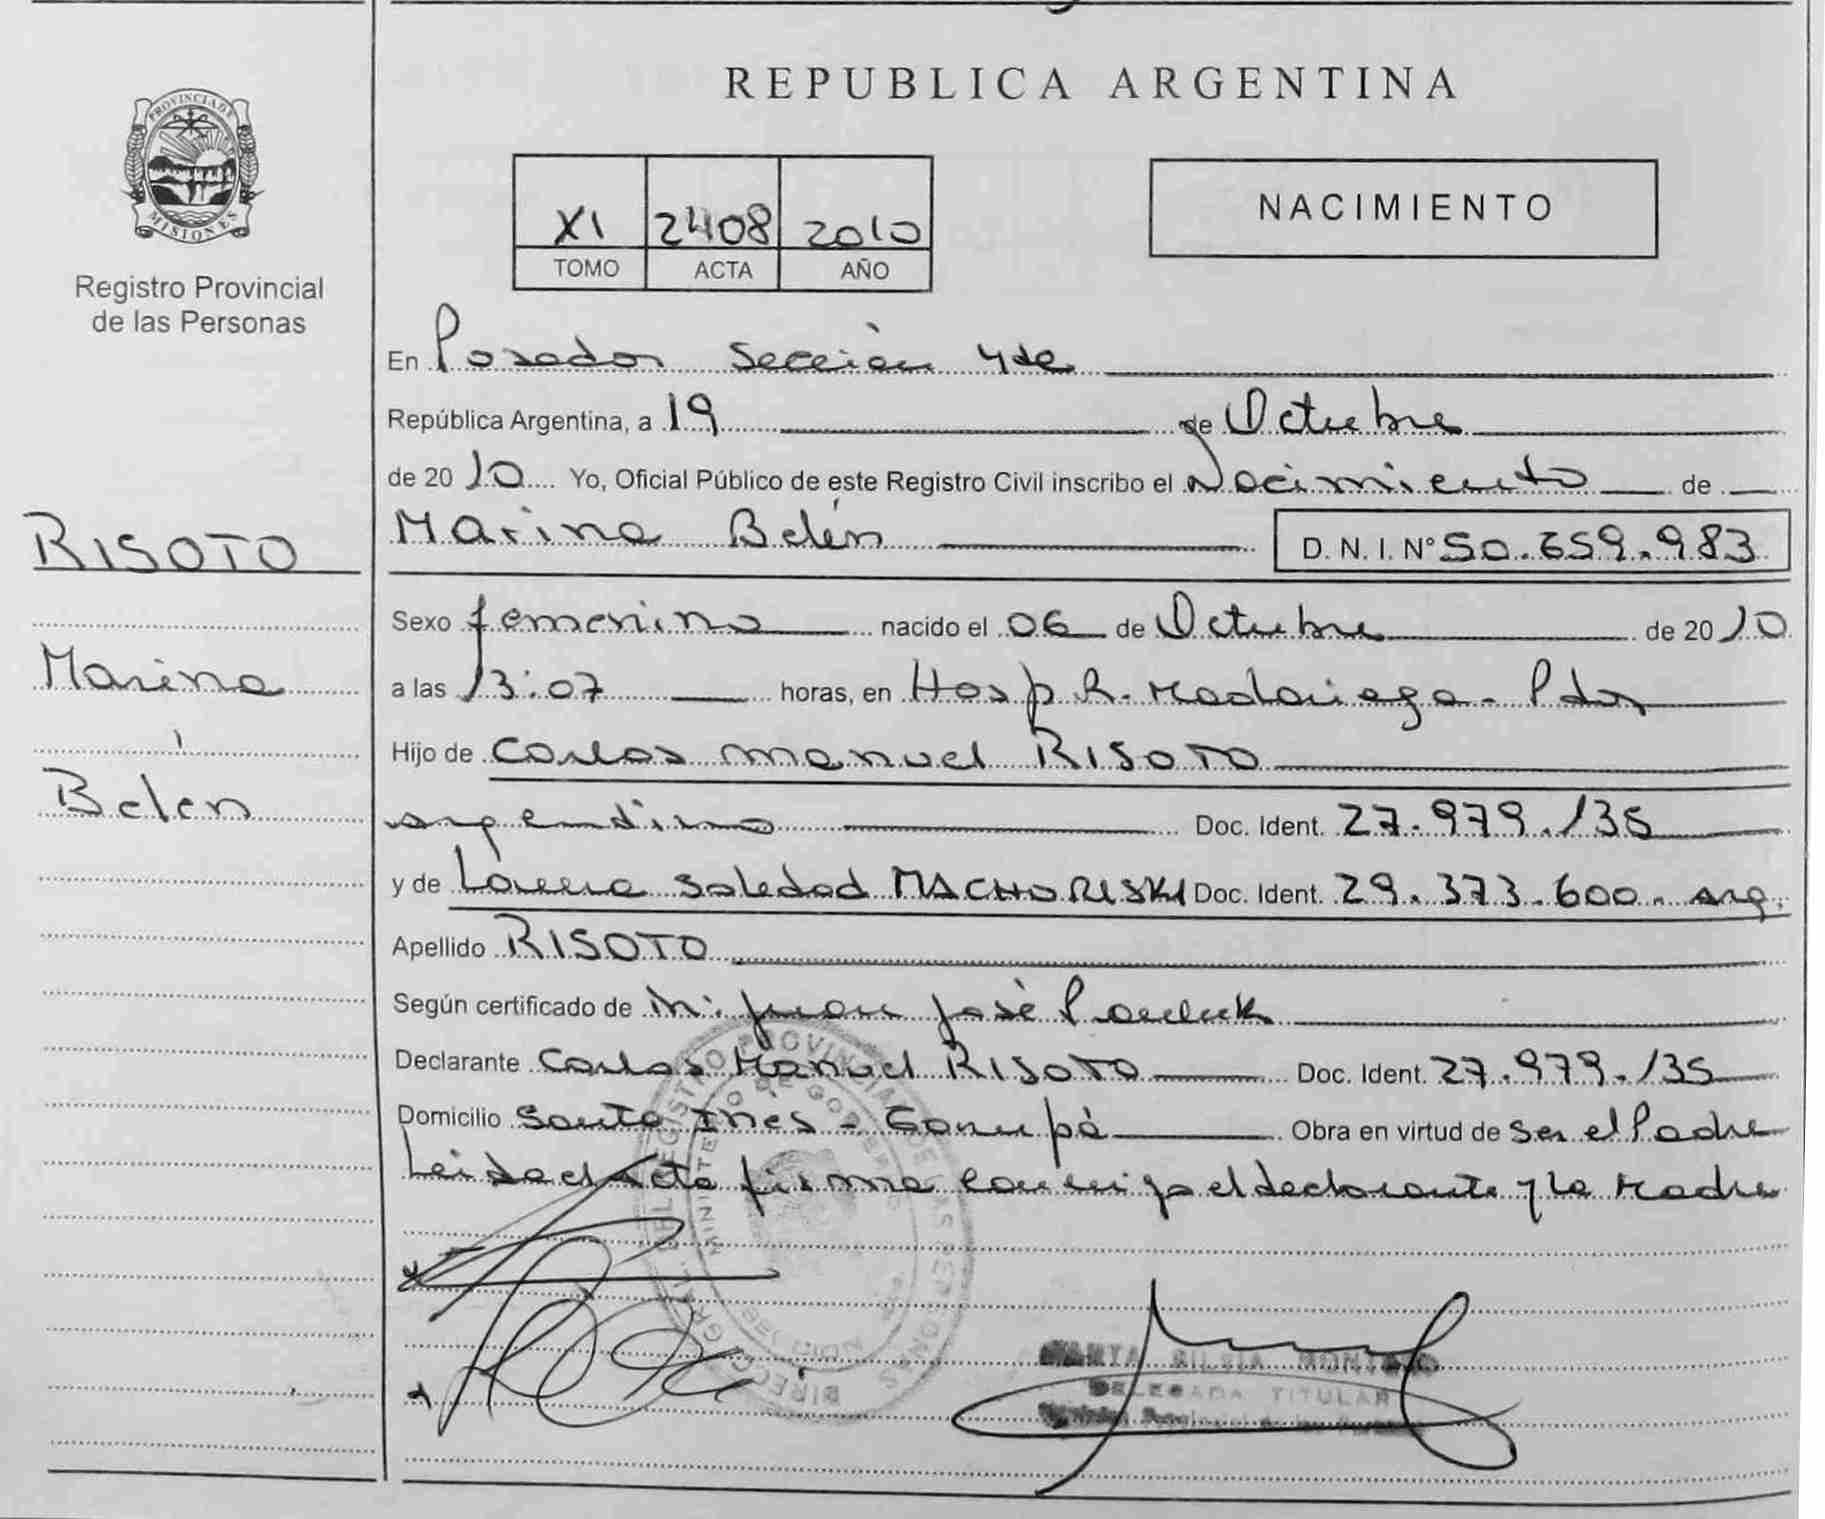 REPUBLICA ARGENTINA
PROVINCIA DE
MISIONES
Registro Provincial
de las Personas
XI 2408 2010
TOMO ACTA AÑO
NACIMIENTO
En Posadas Sección 4ta
República Argentina, a 19 de Octubre
de 2010 Yo, Oficial Público de este Registro Civil inscribo el Nacimiento de
Marina Belén D. N. I. N° 50.659.983
RISOTO
Marina
Belén
Sexo femenino nacido el 06 de Octubre de 2010
a las 13:07 horas, en Hosp. R. Madariaga - Pdas
Hijo de Carlos Manuel RISOTO
argentino Doc. Ident. 27.979.135
y de Lorena Soledad MACHORISKI Doc. Ident. 29.373.600. arg.
Apellido RISOTO
Según certificado de Juan José
Declarante Carlos Manuel RISOTO Doc. Ident. 27.979.135
Domicilio Santa Inés - Garupá Obra en virtud de ser el Padre
Leída el Acta firma conmigo el declarante y la Madre
DIRECC. GRAL. DEL REGISTRO PROVINCIAL DE LAS PERSONAS
MINISTERIO DE GOBIERNO
DELEGADA TITULAR